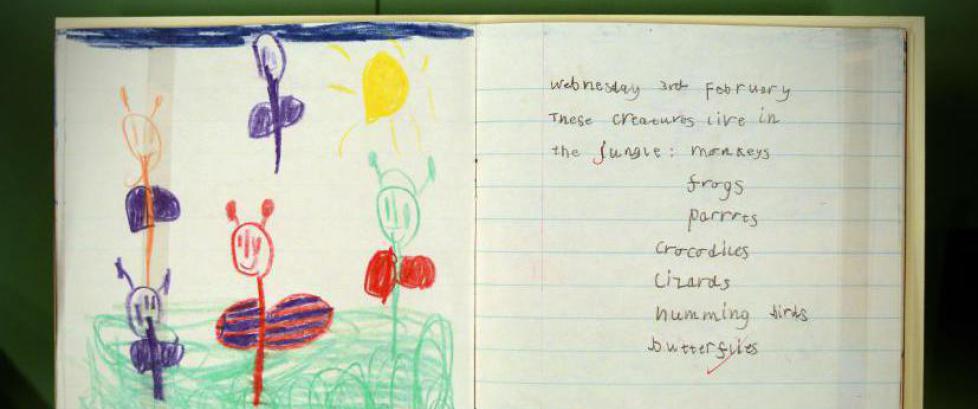 Wednesday 3rd February
These creatures live in
the Jungle: monkeys
frogs
parrots
Crocodiles
Lizards
humming birds
butterflies